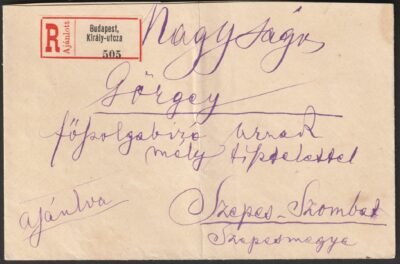 R
Ajánlott
Budapest,
Király-utcza
505
Nagyságos
Görgey
főszolgabiró urnak
mély tisztelettel
ajánlva
Szepes-Szombat
Szepesmegye